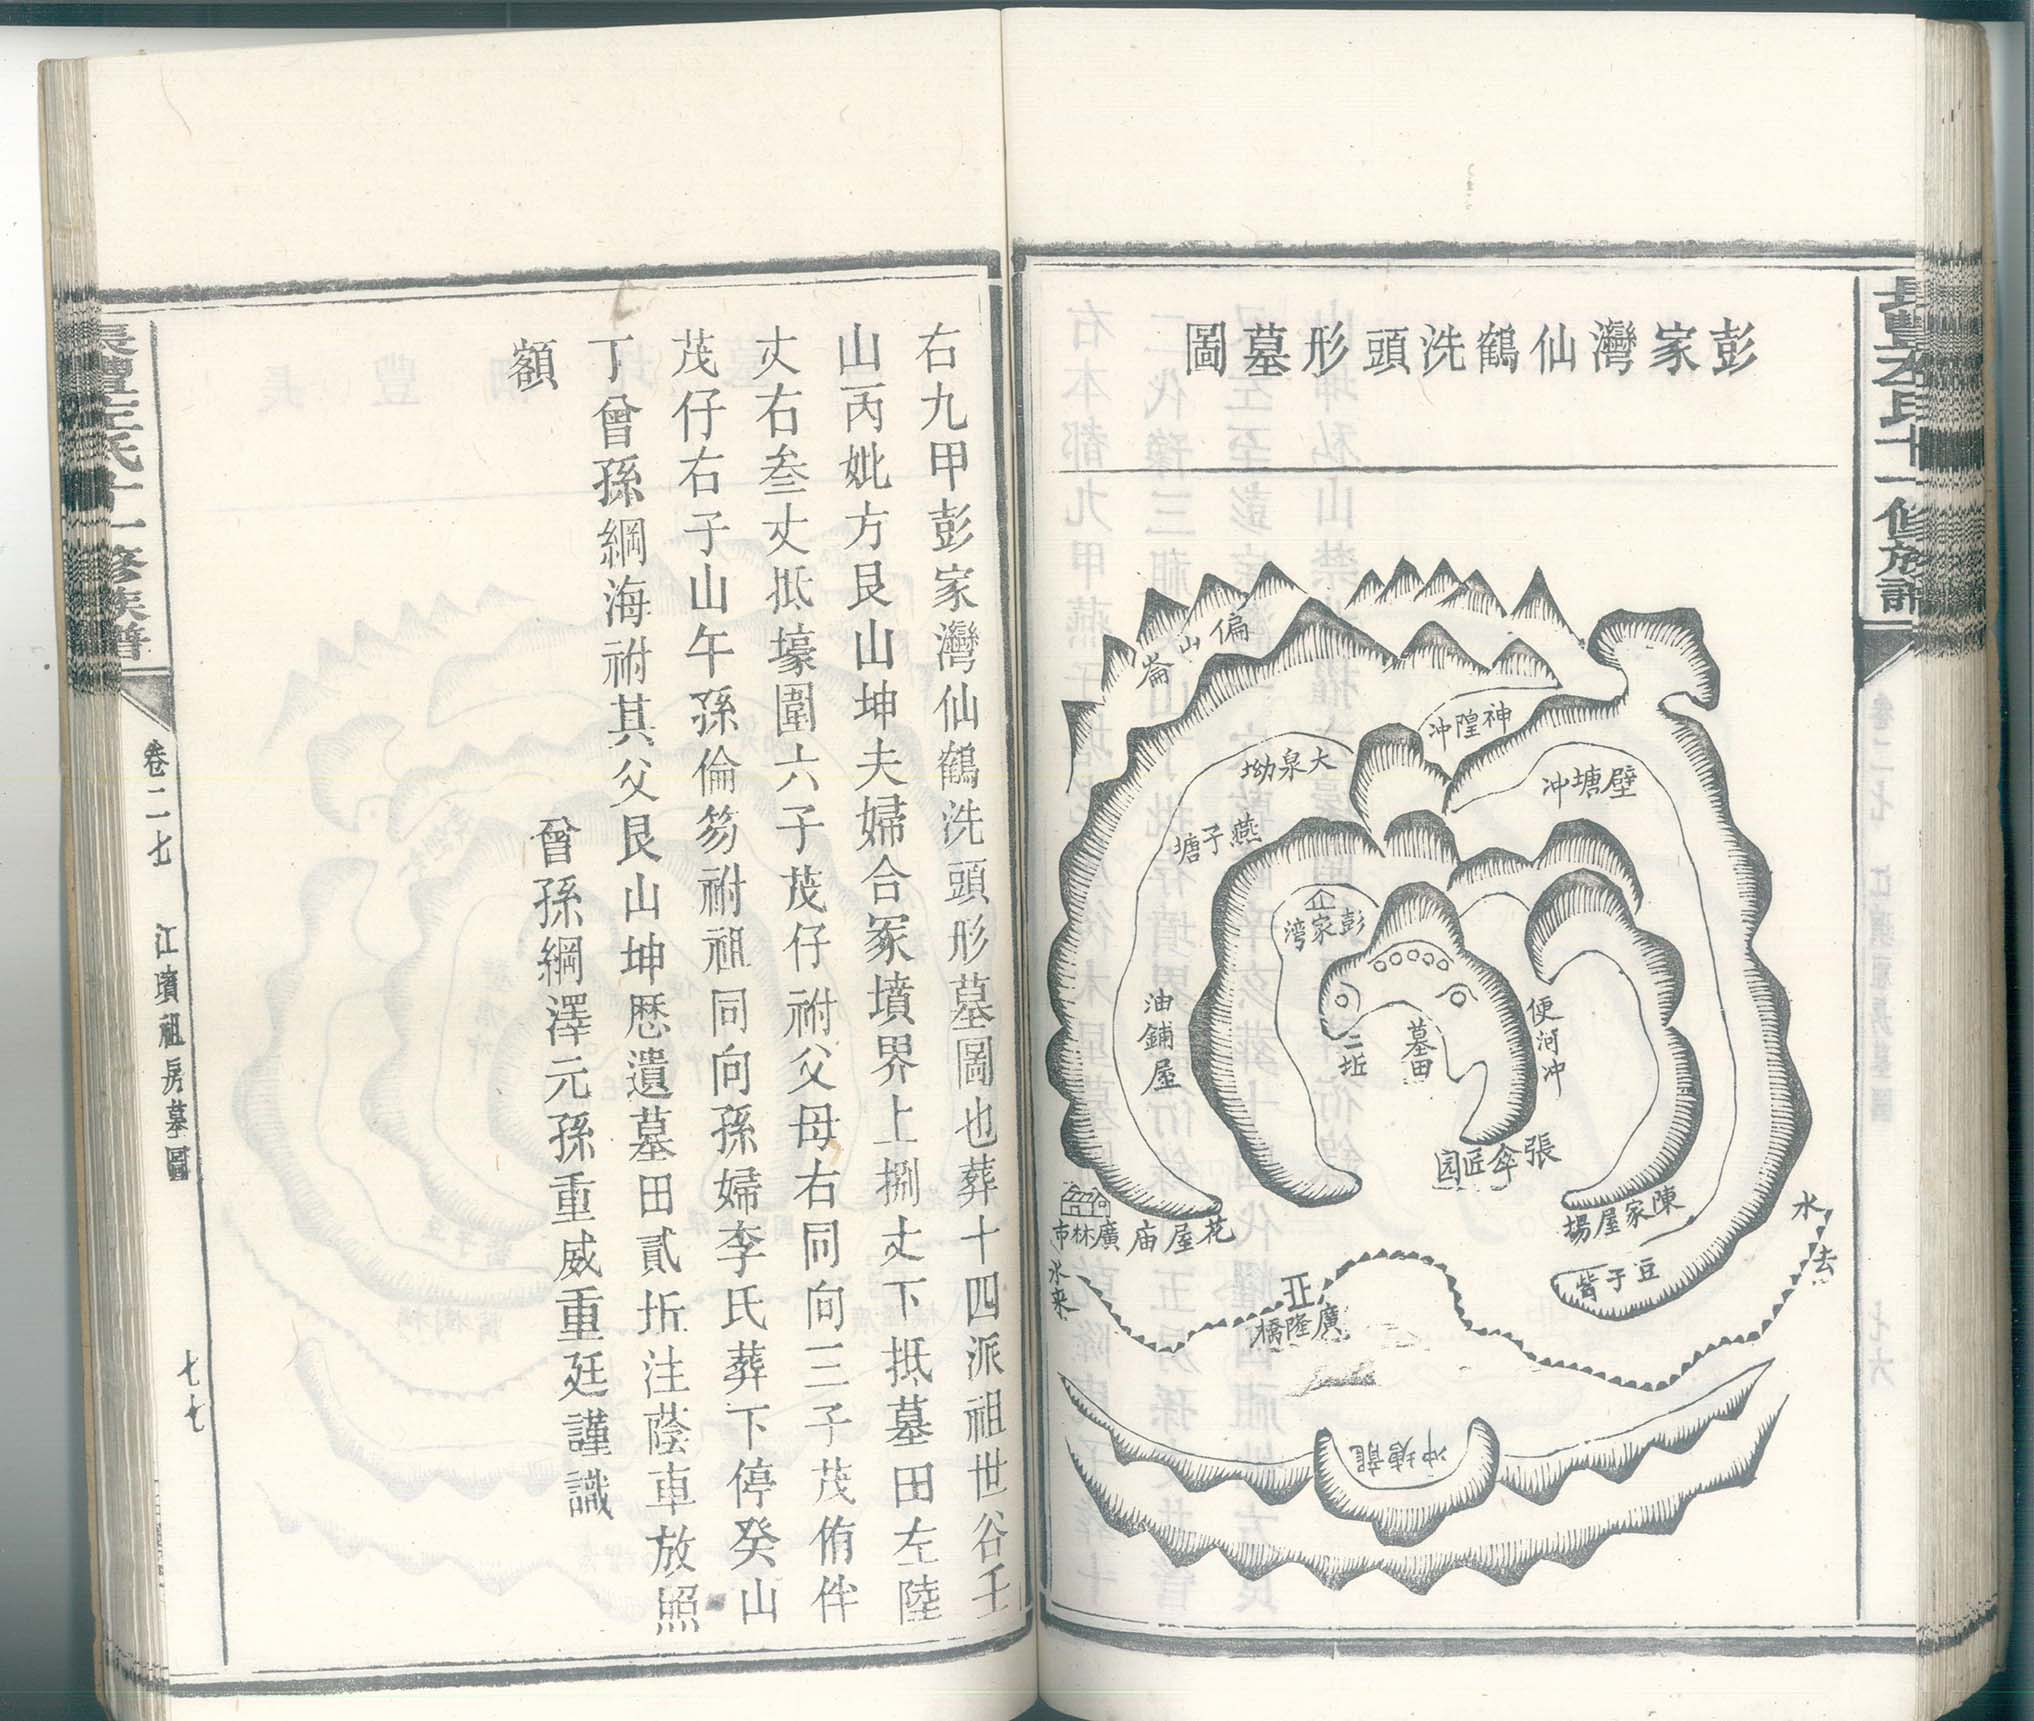 彭家灣仙鶴洗頭形墓圖
偏山崙
神隍冲
大泉坳
壁塘冲
燕子塘
彭家湾
油鋪屋
二坵
墓田
便河冲
張傘匠园
花屋庙
廣林市
陳家屋場
豆子
水去
水来
廣隆橋
龍塘冲
右九甲彭家灣仙鶴洗頭形墓圖也葬十四派祖世谷壬
山丙妣方艮山坤夫婦合冢墳界上捌丈下抵墓田左陸
丈右叁丈抵壕圍六子茂仔祔父母右同向三子茂侑伴
茂仔右子山午孫倫笏祔祖同向孫婦李氏葬下停癸山
丁曾孫綱海祔其父艮山坤歷遺墓田貳坵注蔭車放照
額
曾孫綱澤元孫重威重廷謹識
十一修族譜
卷二七
江墳祖房墓圖
七七